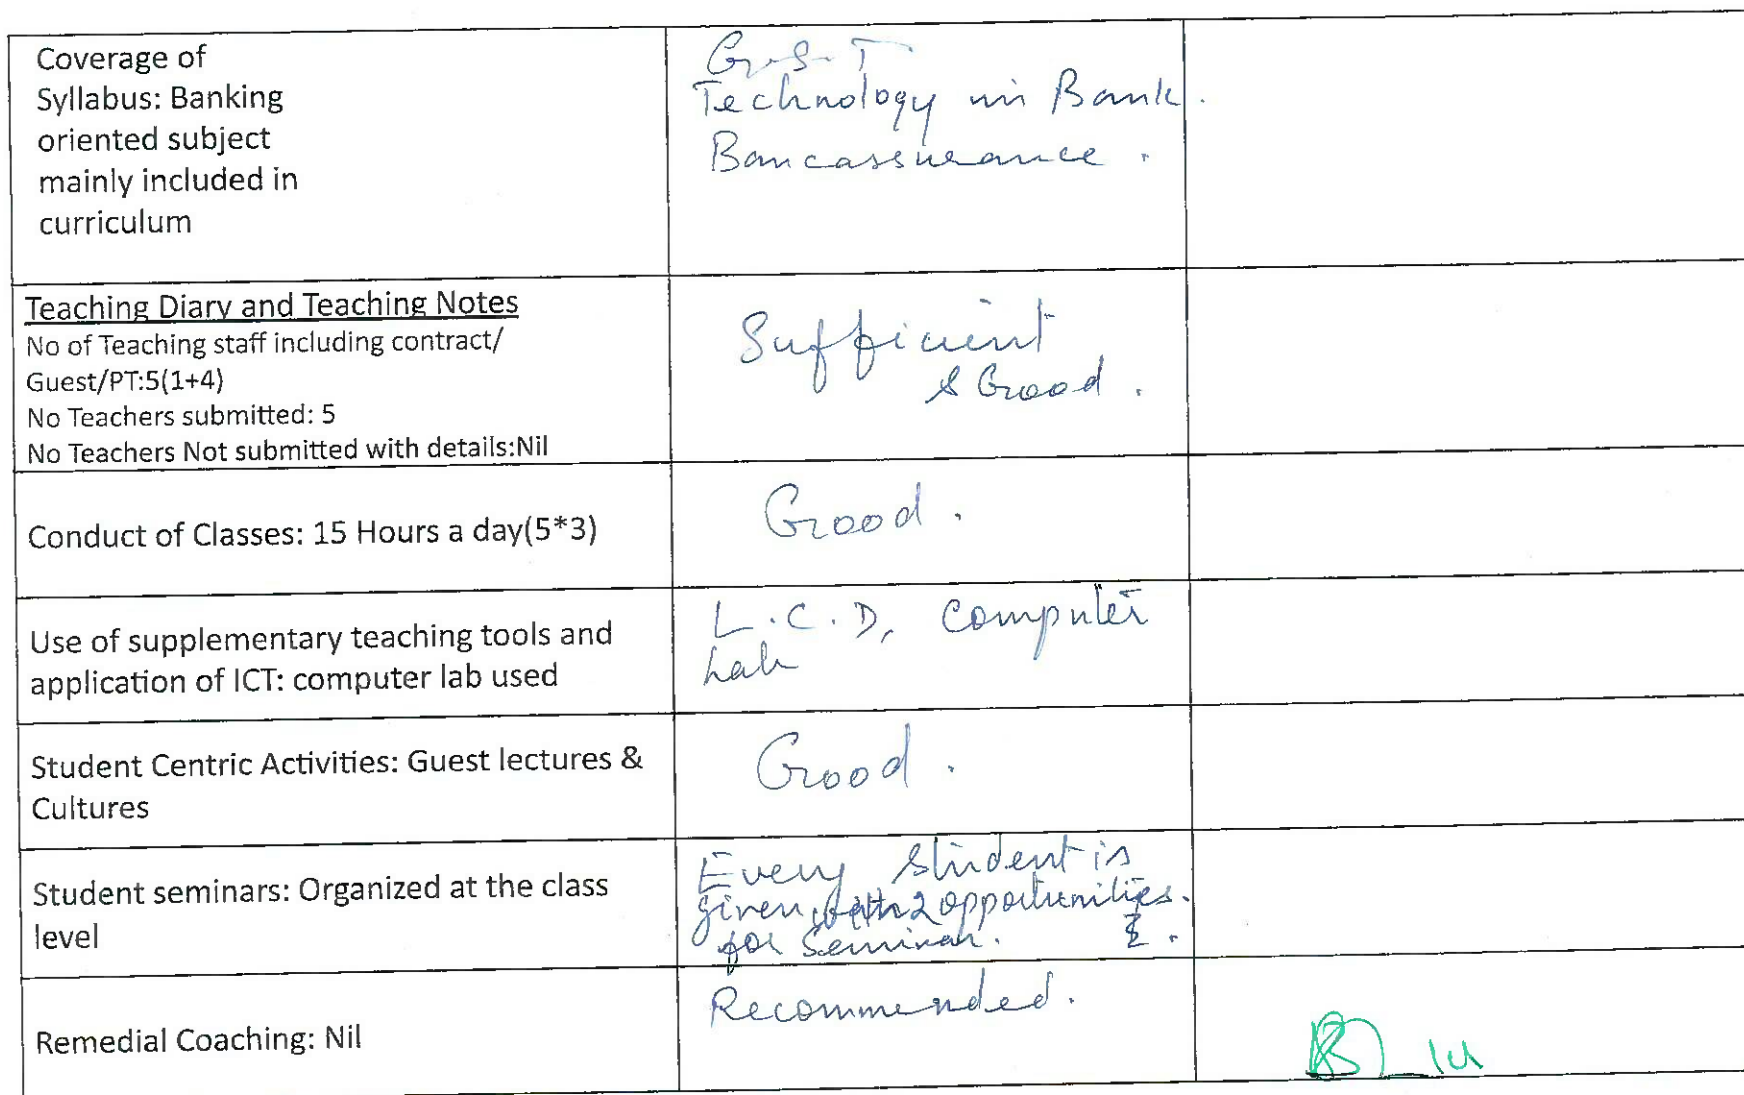 Coverage of
Syllabus: Banking
oriented subject
mainly included in
curriculum
G.S.T
Technology in Bank.
Bancassurance.
Teaching Diary and Teaching Notes
No of Teaching staff including contract/
Guest/PT:5(1+4)
No Teachers submitted: 5
No Teachers Not submitted with details:Nil
Sufficient
& Good.
Conduct of Classes: 15 Hours a day(5*3)
Good.
Use of supplementary teaching tools and
application of ICT: computer lab used
L.C.D, Computer
Lab
Student Centric Activities: Guest lectures &
Cultures
Good.
Student seminars: Organized at the class
level
Every student is
given 2 opportunities.
for Seminar.
Remedial Coaching: Nil
Recommended.